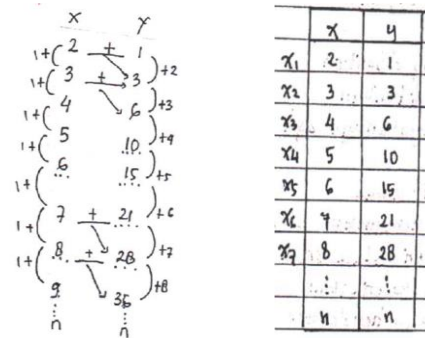 x y
1+ 2 + 1 +2
1+ 3 + 3 +3
1+ 4 6 +4
1+ 5 10 +5
1+ 6 15 +6
1+ 7 + 21 +7
1+ 8 + 28 +8
9 36
n n
x y
x1 2 1
x2 3 3
x3 4 6
x4 5 10
x5 6 15
x6 7 21
x7 8 28
⋮ ⋮
n n